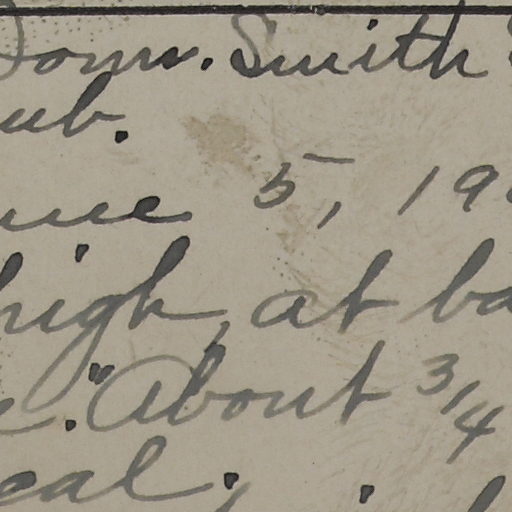 Donn. Smith
ub.
une 5, 19
high, at ba
." About 3/4
eal.